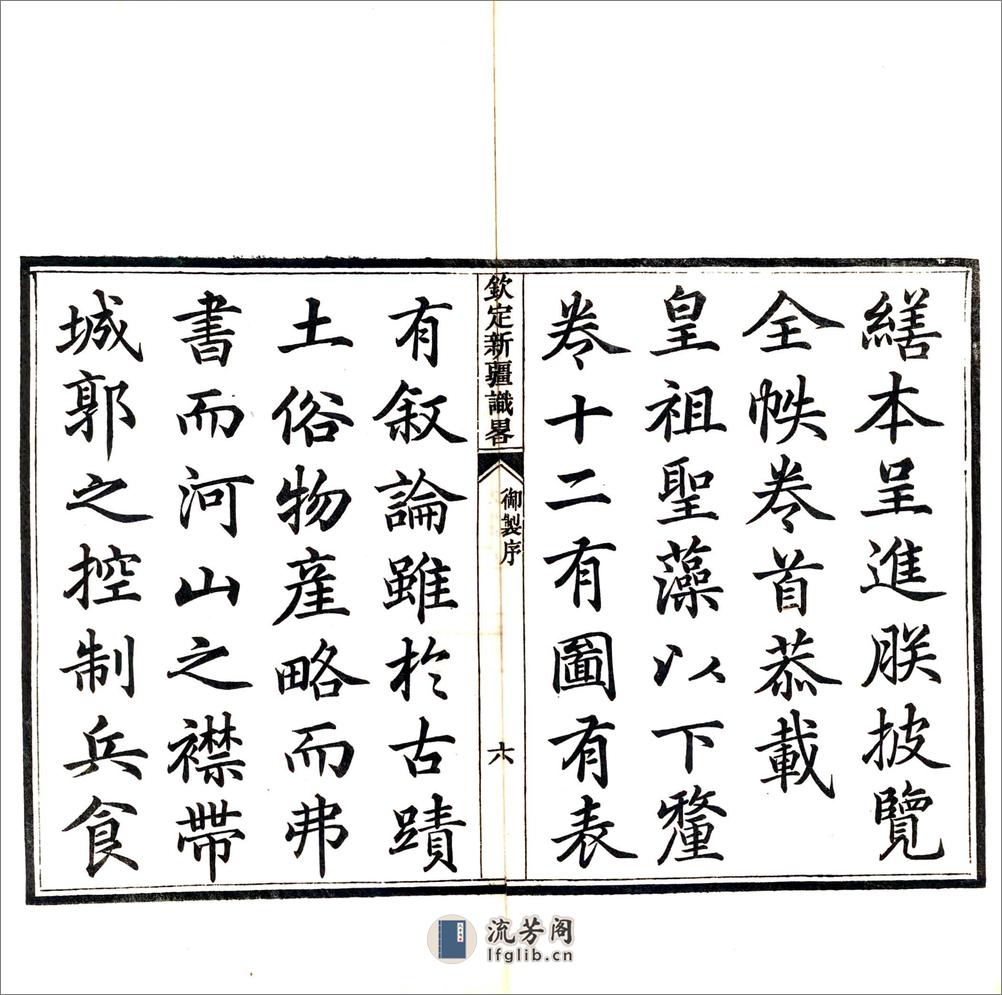 繕本呈進朕披覽
全帙卷首恭載
皇祖聖藻以下釐
卷十二有圖有表
欽定新疆識畧
御製序
六
有叙論雖於古蹟
土俗物產略而弗
書而河山之襟帶
城郭之控制兵食
流芳阁
lfglib.cn